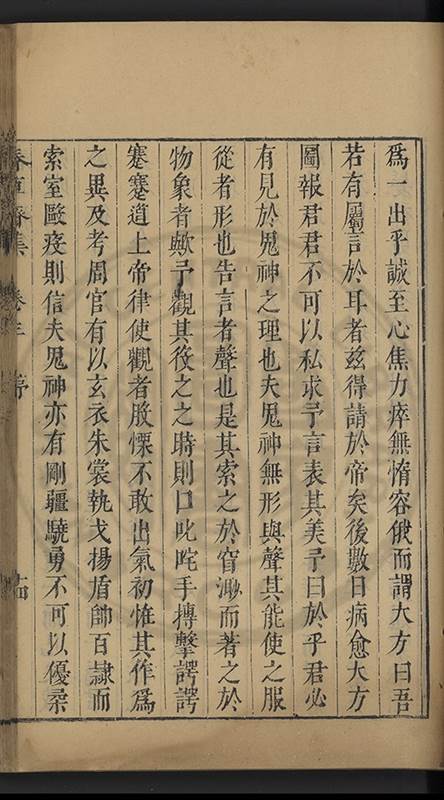 爲一出乎誠至心焦力瘁無惰容俄而謂大方曰吾
若有屬言於耳者兹得請於帝矣後數日病愈大方
圖報君君不可以私求予言表其美予曰於乎君必
有見於鬼神之理也夫鬼神無形與聲其能使之服
從者形也告言者聲也是其索之於窅渺而著之於
物象者歟予觀其役之之時則口叱咤手摶擊諤諤
蹇蹇道上帝律使觀者股慄不敢出氣初惟其作爲
之異及考周官有以玄衣朱裳執戈揚盾帥百隸而
索室敺疫則信夫鬼神亦有剛彊驍勇不可以優柔
春草齋集 卷三 序